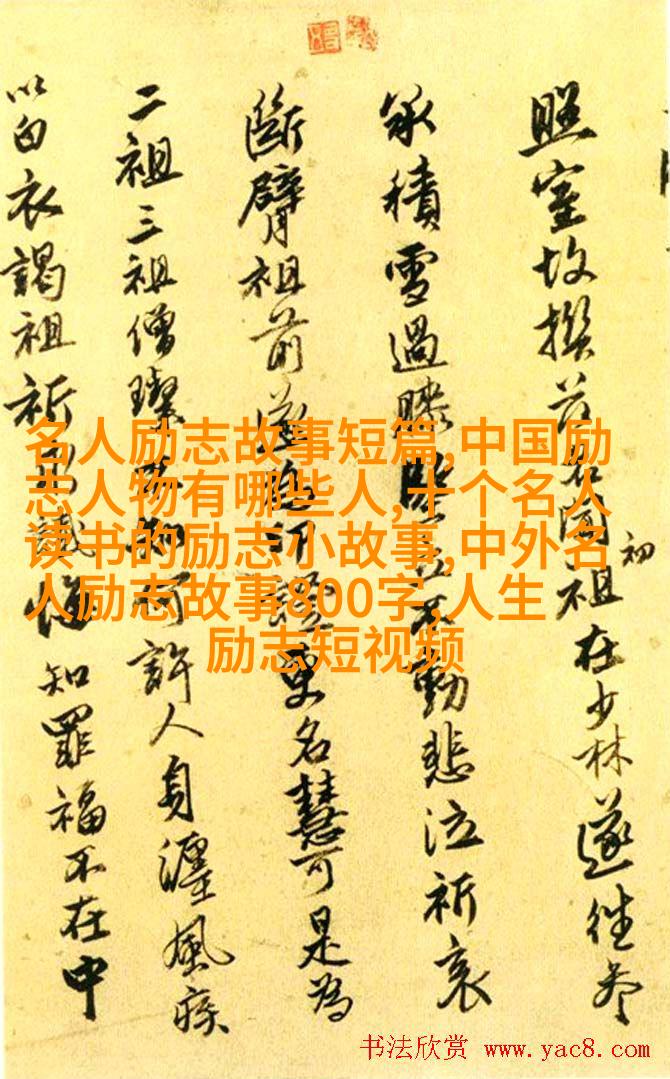 照室故撰茲名聞初祖在少林遂往參
承積雪過膝堅立不動悲泣祈哀
斷臂祖前遂更名慧可是為
二祖三祖僧璨何許人身纏風疾
以白衣謁祖祈懺悔知罪福不在中
名人励志故事短篇,中国励
志人物有哪些人,十个名人
读书的励志小故事,中外名
人励志故事800字,人生
励志短视频
书法欣赏 www.yac8.com